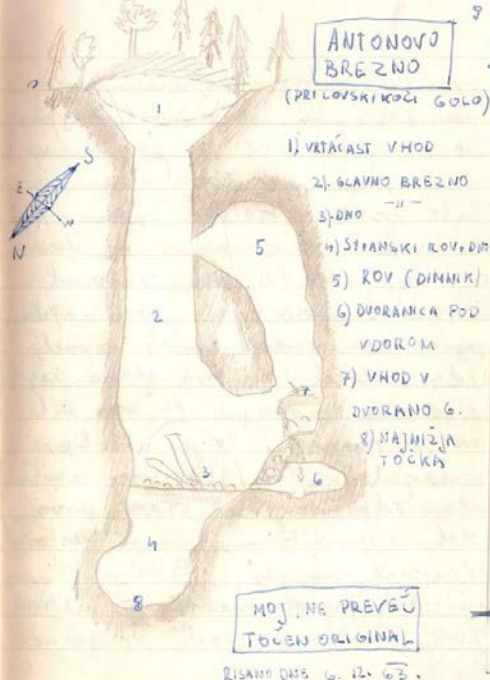 9
ANTONOVO
BREZNO
(PRI LOVSKI KOČI GOLO)
1) VRTAČAST VHOD
2). GLAVNO BREZNO
3). DNO —"—
4) STRANSKI ROV, DNO
5) ROV (DIMNIK)
6) DVORANICA POD
VDOROM
7) VHOD V
DVORANO 6.
8) NAJNIŽJA
TOČKA
1
S
E
W
N
5
2
7
3
6
4
8
MOJ, NE PREVEČ
TOČEN ORIGINAL
RISANO DNE 6. 12. 63.